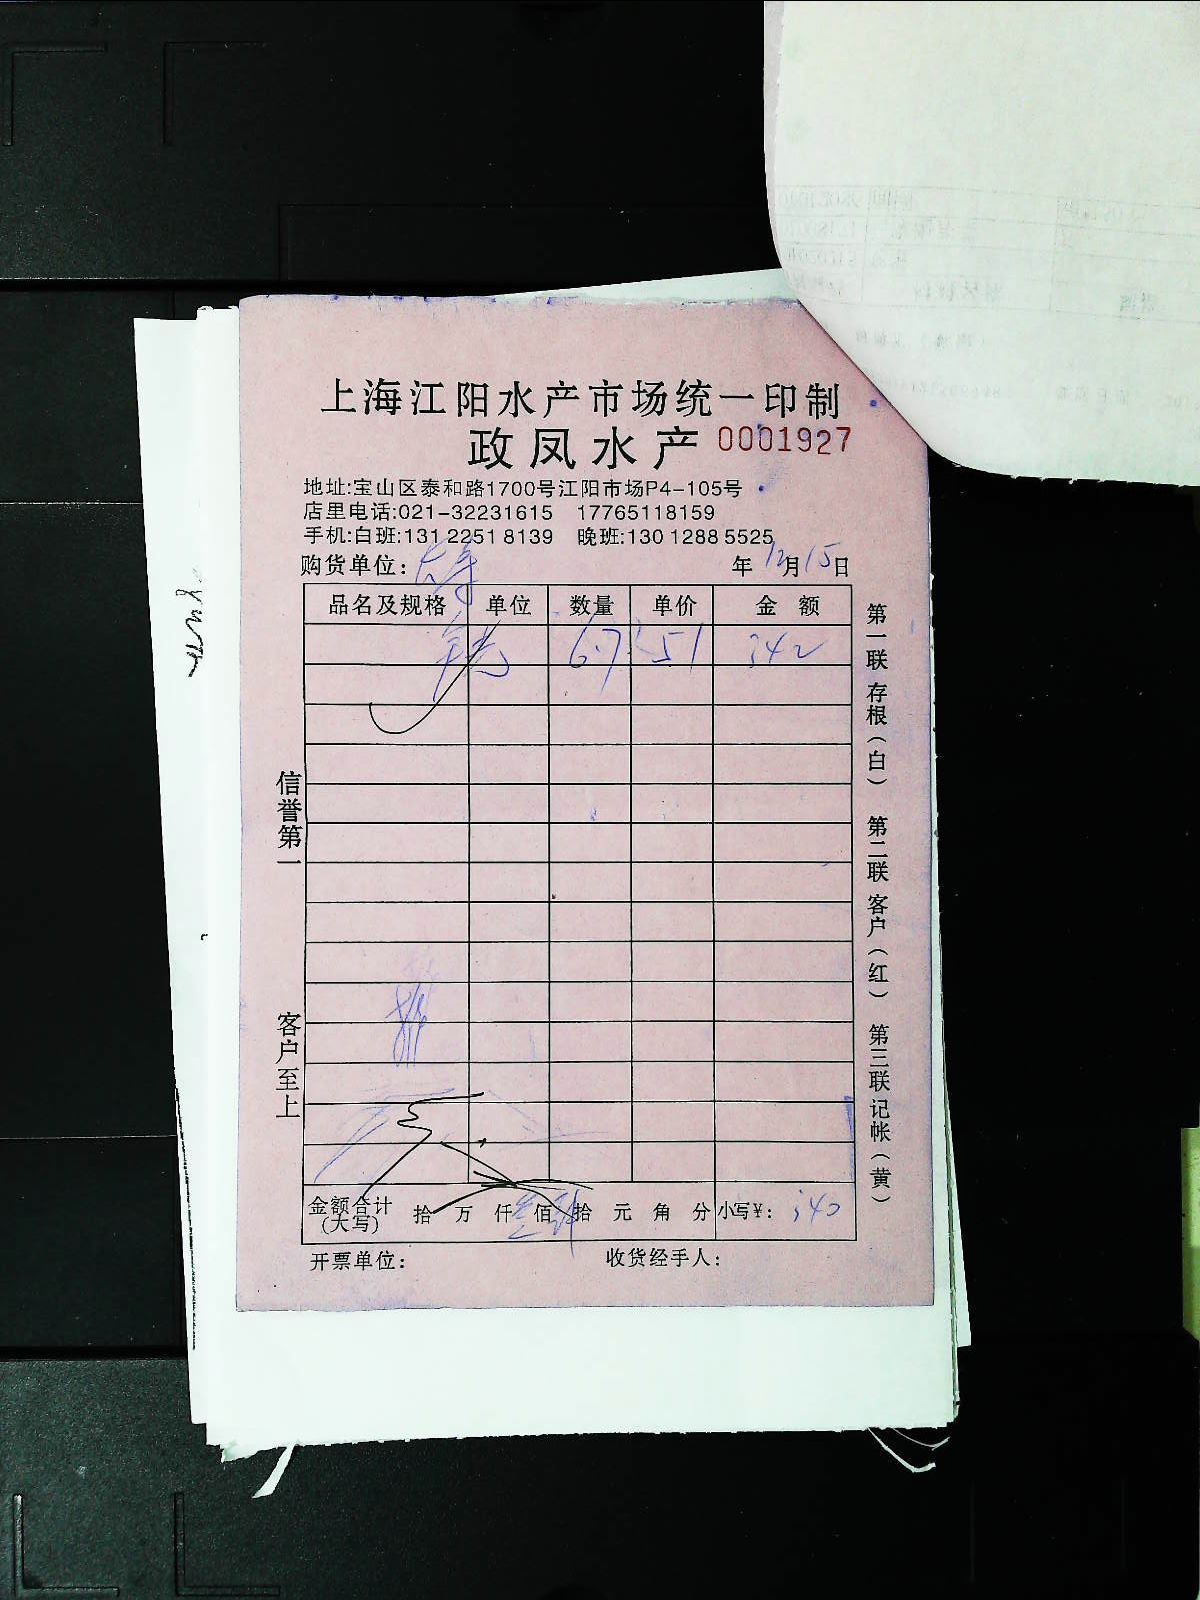 上海江阳水产市场统一印制
政凤水产 0001927
地址:宝山区泰和路1700号江阳市场P4-105号
店里电话:021-32231615 17765118159
手机:白班:131 2251 8139 晚班:130 1288 5525
购货单位: 年12月15日
品名及规格 单位 数量 单价 金额
6.7 51 342
信誉第一
客户至上
第一联 存根(白) 第二联 客户(红) 第三联 记帐(黄)
金额合计(大写) 拾 万 仟 佰 拾 元 角 分 小写¥: 340
开票单位: 收货经手人: